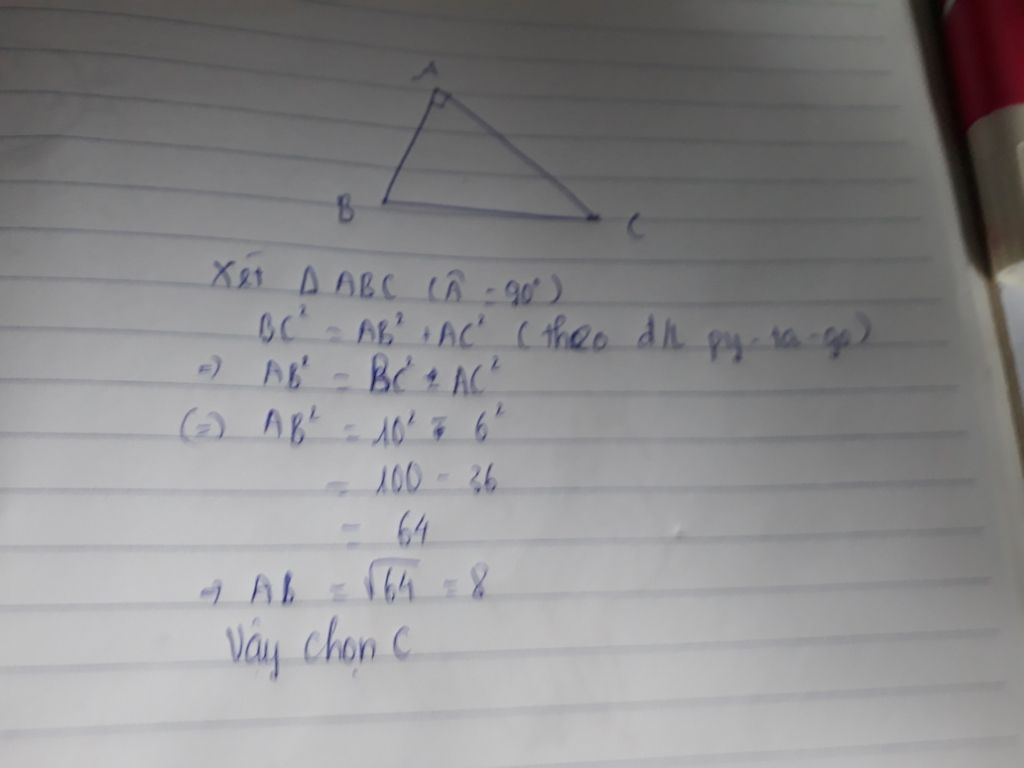 A
B
C
Xét Δ ABC (Â = 90°)
BC² = AB² + AC² (theo đ/l py-ta-go)
=> AB² = BC² - AC²
(=) AB² = 10² - 6²
= 100 - 36
= 64
=> AB = √64 = 8
Vậy chọn C